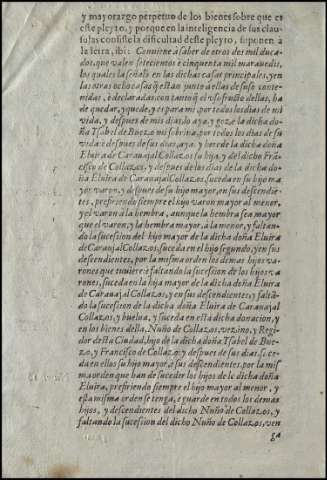 y mayorazgo perpetuo de los bienes sobre que es
este pleyto, y porque en la inteligencia de sus clau-
sulas consiste la dificultad deste pleyto, se ponen à
la letra, ibi. Conviene à saber de otros dos mil duca-
dos, que valen setecientos è cinquenta mil maravedis,
los quales la señalo en las dichas casas principales, y en
las otras ocho casas q̃ estàn junto à ellas de suso conte-
nidas, è declaradas, con tanto q̃ el vsofructo dellas, ha
de quedar, y quede, y es para mi, por todos los dias de mi
vida, y despues de mis dias, lo aya, y goze la dicha do-
ña Ysabel de Buezo mi sobrina, por todos los dias de su
vida: è despues de sus dias, aya, y herede la dicha doña
Elvira de Caravajal Collazos su hija, y del dicho Frã-
cisco de Collazos, y despues de los dias de la dicha do-
ña Elvira de Caravajal Collazos, suceda en su hijo ma
yor varon, y despues de su hijo mayor, en sus descendiẽ-
tes, prefiriendo siempre el hijo varon mayor al menor,
y el varon à la hembra, aunque la hembra sea mayor
que el varon, y la hembra mayor, à la menor, y faltan-
do la sucesion del hijo mayor de la dicha doña Elvira
de Caravajal Collazos, suceda en el hijo segundo, y en sus
descendientes, por la misma orden los demas hijos va-
rones que tuviere: è faltando la sucesion de los hijos va-
rones, suceda en la hija mayor de la dicha doña Elvira
de Caravajal Collazos, y en sus descendientes; y faltã-
do la sucesion de la dicha doña Elvira de Caravajal
Collazos, y buelva, y suceda en esta dicha donacion, y
en los bienes della, Nuño de Collazos, vezino, y Regi-
dor desta Ciudad, hijo de la dicha doña Ysabel de Bue-
zo, y Francisco de Collazos; y despues de sus dias suce-
da en ellos su hijo mayor, è sus descendientes, por la mis̃
ma orden que han de suceder los hijos de la dicha doña
Elvira, prefiriendo siempre el hijo mayor al menor, y
esta misma orden se tenga, è guarde en todos los demas
hijos, y descendientes del dicho Nuño de Collazos, y
faltando la sucesion del dicho Nuño de Collazos, ven
ga